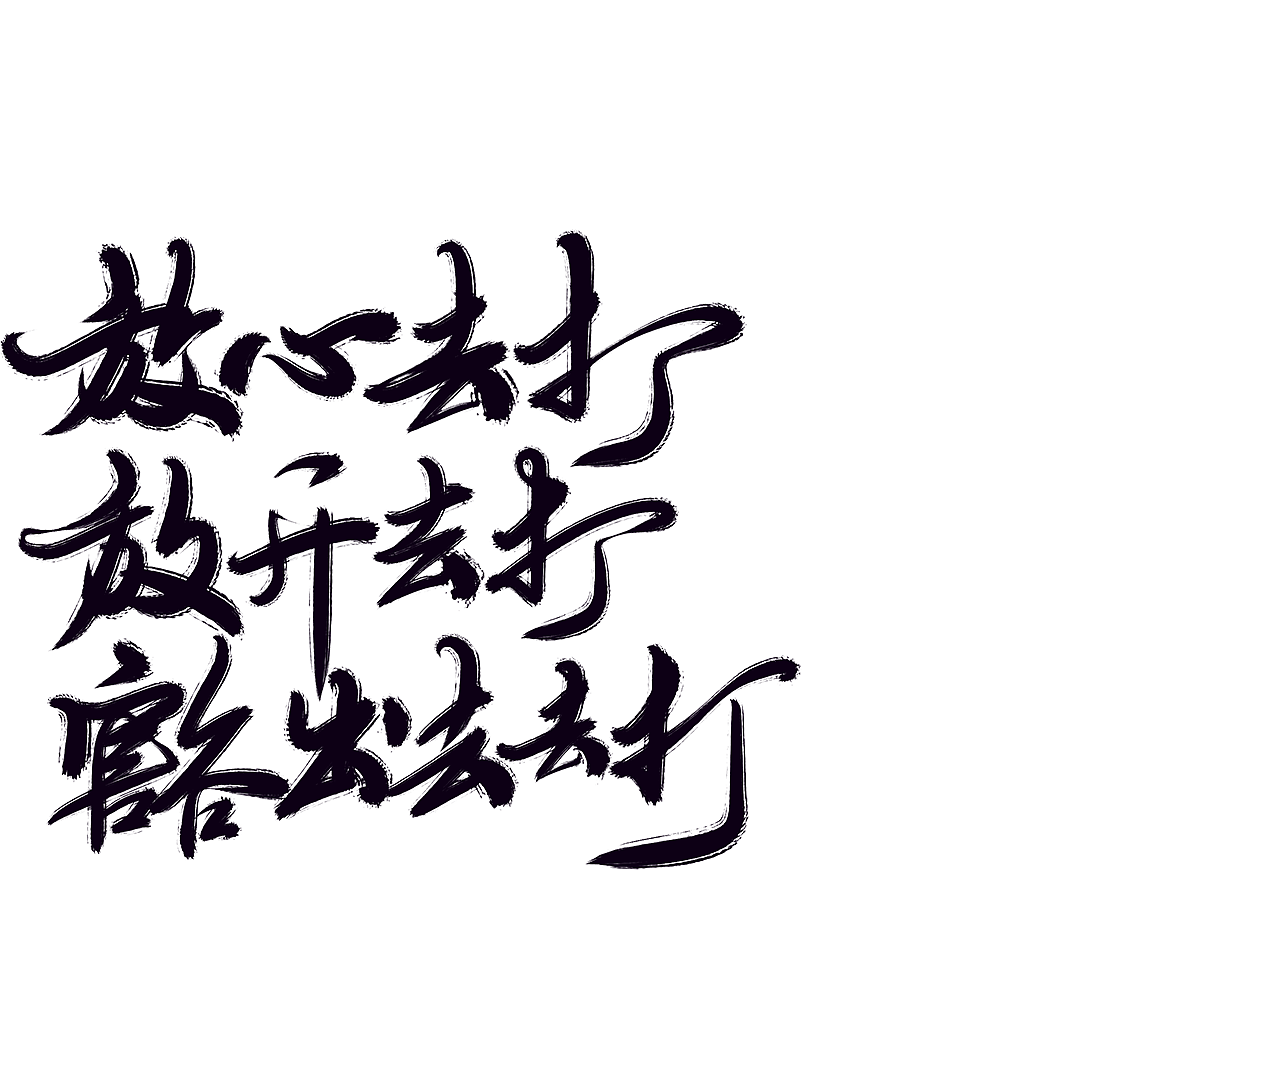 放心去打
放开去打
豁出去去打